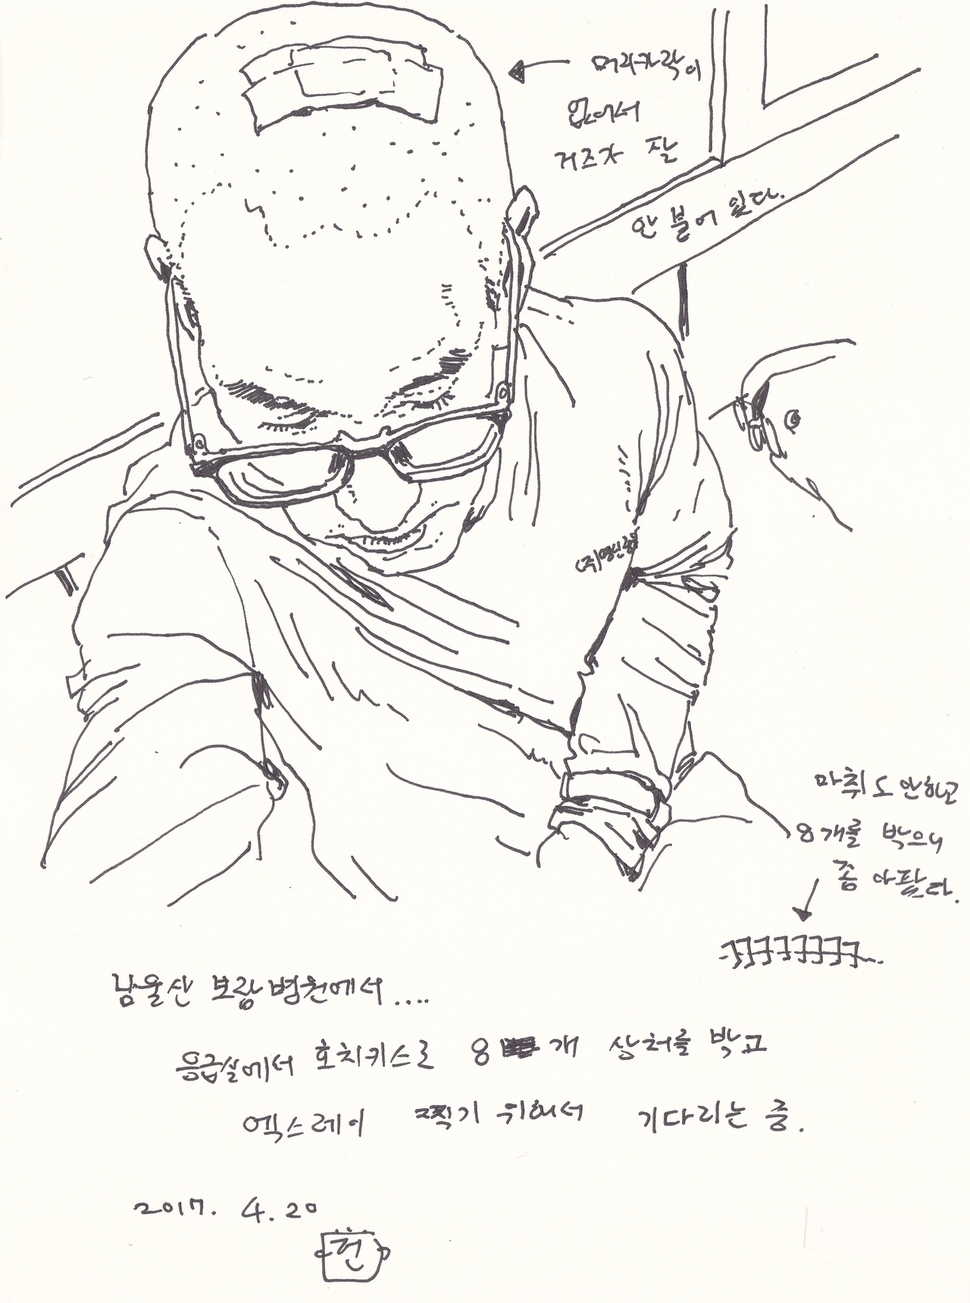 머리카락이
없어서
거즈가 잘
안 붙어 있다.
마취도 안하고
8개를 박으니
좀 아팠다.
남울산 보람병원에서....
응급실에서 호치키스로 8 개 상처를 박고
엑스레이 찍기 위해서 기다리는 중.
2017. 4. 20
건